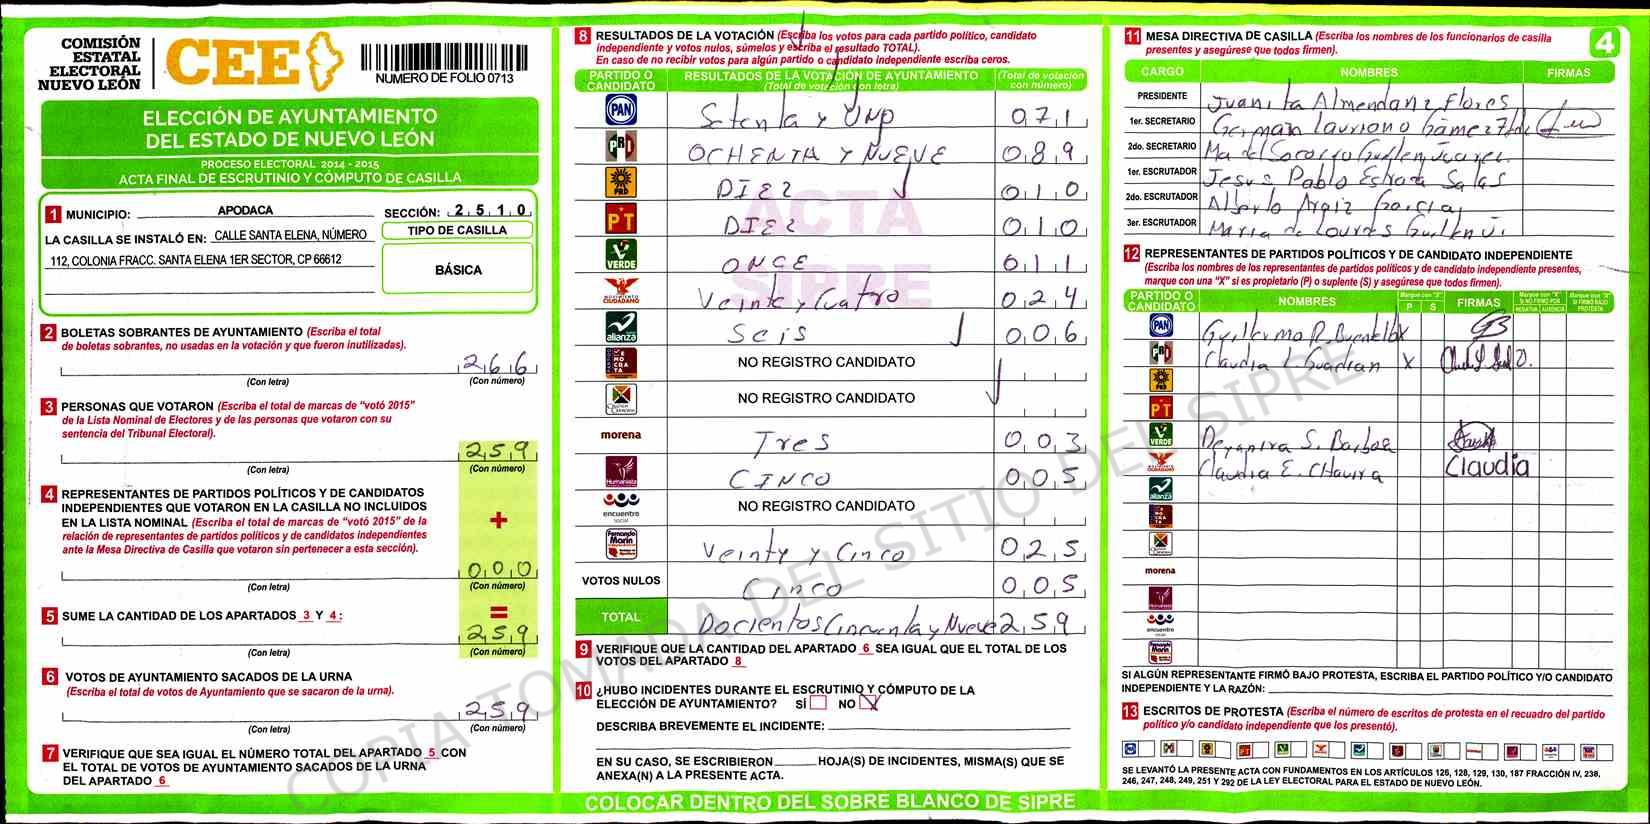 COMISIÓN
ESTATAL
ELECTORAL
NUEVO LEÓN
CEE
NUMERO DE FOLIO 0713
ELECCIÓN DE AYUNTAMIENTO
DEL ESTADO DE NUEVO LEÓN
PROCESO ELECTORAL 2014 - 2015
ACTA FINAL DE ESCRUTINIO Y CÓMPUTO DE CASILLA
1 MUNICIPIO: APODACA SECCIÓN: 2510
LA CASILLA SE INSTALÓ EN: CALLE SANTA ELENA, NÚMERO
112, COLONIA FRACC. SANTA ELENA 1ER SECTOR, CP 66612
TIPO DE CASILLA
BÁSICA
2 BOLETAS SOBRANTES DE AYUNTAMIENTO (Escriba el total
de boletas sobrantes, no usadas en la votación y que fueron inutilizadas).
266
(Con letra) (Con número)
3 PERSONAS QUE VOTARON (Escriba el total de marcas de “votó 2015”
de la Lista Nominal de Electores y de las personas que votaron con su
sentencia del Tribunal Electoral).
259
(Con letra) (Con número)
4 REPRESENTANTES DE PARTIDOS POLÍTICOS Y DE CANDIDATOS
INDEPENDIENTES QUE VOTARON EN LA CASILLA NO INCLUIDOS
EN LA LISTA NOMINAL (Escriba el total de marcas de “votó 2015” de la
relación de representantes de partidos políticos y de candidatos independientes
ante la Mesa Directiva de Casilla que votaron sin pertenecer a esta sección).
+
000
(Con letra) (Con número)
5 SUME LA CANTIDAD DE LOS APARTADOS 3 Y 4:
=
259
(Con letra) (Con número)
6 VOTOS DE AYUNTAMIENTO SACADOS DE LA URNA
(Escriba el total de votos de Ayuntamiento que se sacaron de la urna).
259
(Con letra) (Con número)
7 VERIFIQUE QUE SEA IGUAL EL NÚMERO TOTAL DEL APARTADO 5 CON
EL TOTAL DE VOTOS DE AYUNTAMIENTO SACADOS DE LA URNA
DEL APARTADO 6
8 RESULTADOS DE LA VOTACIÓN (Escriba los votos para cada partido político, candidato
independiente y votos nulos, súmelos y escriba el resultado TOTAL).
En caso de no recibir votos para algún partido o candidato independiente escriba ceros.
PARTIDO O CANDIDATO RESULTADOS DE LA VOTACIÓN DE AYUNTAMIENTO (Total de votación con letra) (Total de votación con número)
PAN Setenta y Uno 071
PRI OCHENTA Y NUEVE 089
PRD DIEZ 010
PT DIEZ 010
VERDE ONCE 011
MOVIMIENTO CIUDADANO Veinte y Cuatro 024
alianza Seis 006
NO REGISTRO CANDIDATO
NO REGISTRO CANDIDATO
morena Tres 003
Humanista CINCO 005
encuentro social NO REGISTRO CANDIDATO
Fernando Marín Veinty y Cinco 025
VOTOS NULOS Cinco 005
TOTAL Docientos Cincuenta y Nueve 259
ACTA
SIPRE
9 VERIFIQUE QUE LA CANTIDAD DEL APARTADO 6 SEA IGUAL QUE EL TOTAL DE LOS
VOTOS DEL APARTADO 8
10 ¿HUBO INCIDENTES DURANTE EL ESCRUTINIO Y CÓMPUTO DE LA
ELECCIÓN DE AYUNTAMIENTO? SÍ NO X
DESCRIBA BREVEMENTE EL INCIDENTE:
EN SU CASO, SE ESCRIBIERON HOJA(S) DE INCIDENTES, MISMA(S) QUE SE
ANEXA(N) A LA PRESENTE ACTA.
COLOCAR DENTRO DEL SOBRE BLANCO DE SIPRE
11 MESA DIRECTIVA DE CASILLA (Escriba los nombres de los funcionarios de casilla
presentes y asegúrese que todos firmen).
4
CARGO NOMBRES FIRMAS
PRESIDENTE Juanita Almendariz Flores
1er. SECRETARIO German Lauriano Gámez
2do. SECRETARIO Ma del Socorro Guillen
1er. ESCRUTADOR Jesus Pablo Estrada Salas
2do. ESCRUTADOR Alberto Araiz Garcia
3er. ESCRUTADOR Maria de Lourdes Guillen
12 REPRESENTANTES DE PARTIDOS POLÍTICOS Y DE CANDIDATO INDEPENDIENTE
(Escriba los nombres de los representantes de partidos políticos y de candidato independiente presentes,
marque con una “X” si es propietario (P) o suplente (S) y asegúrese que todos firmen).
PARTIDO O CANDIDATO NOMBRES Marque con “X” P S FIRMAS Marque con “X” SI NO FIRMÓ POR NEGATIVA AUSENCIA Marque con “X” SI FIRMÓ BAJO PROTESTA
PAN Guillermo R. X
PRI Claudia L. Guadian X
PRD
PT
VERDE Deyanira S. Barboa
MOVIMIENTO CIUDADANO Claudia E. Chavira Claudia
alianza
morena
Humanista
encuentro social
Fernando Marín
SI ALGÚN REPRESENTANTE FIRMÓ BAJO PROTESTA, ESCRIBA EL PARTIDO POLÍTICO Y/O CANDIDATO
INDEPENDIENTE Y LA RAZÓN:
13 ESCRITOS DE PROTESTA (Escriba el número de escritos de protesta en el recuadro del partido
político y/o candidato independiente que los presentó).
SE LEVANTÓ LA PRESENTE ACTA CON FUNDAMENTOS EN LOS ARTÍCULOS 126, 128, 129, 130, 187 FRACCIÓN IV, 238,
246, 247, 248, 249, 251 Y 292 DE LA LEY ELECTORAL PARA EL ESTADO DE NUEVO LEÓN.
COPIA TOMADA DEL SITIO DEL SIPRE